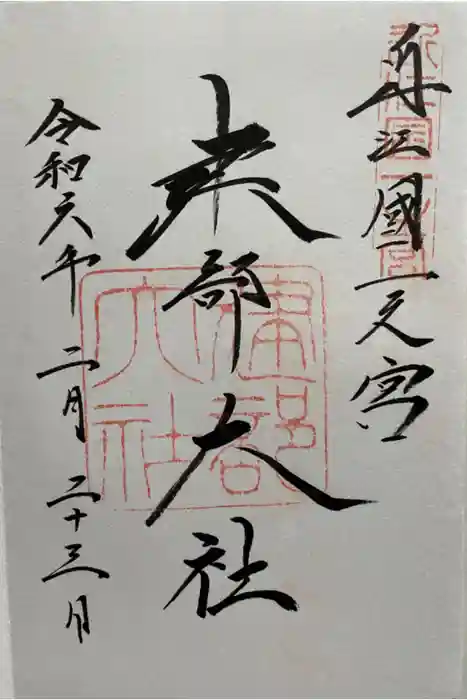 近江國一之宮
近江国一之宮
建部大社
建部
大社
令和六年二月二十三日